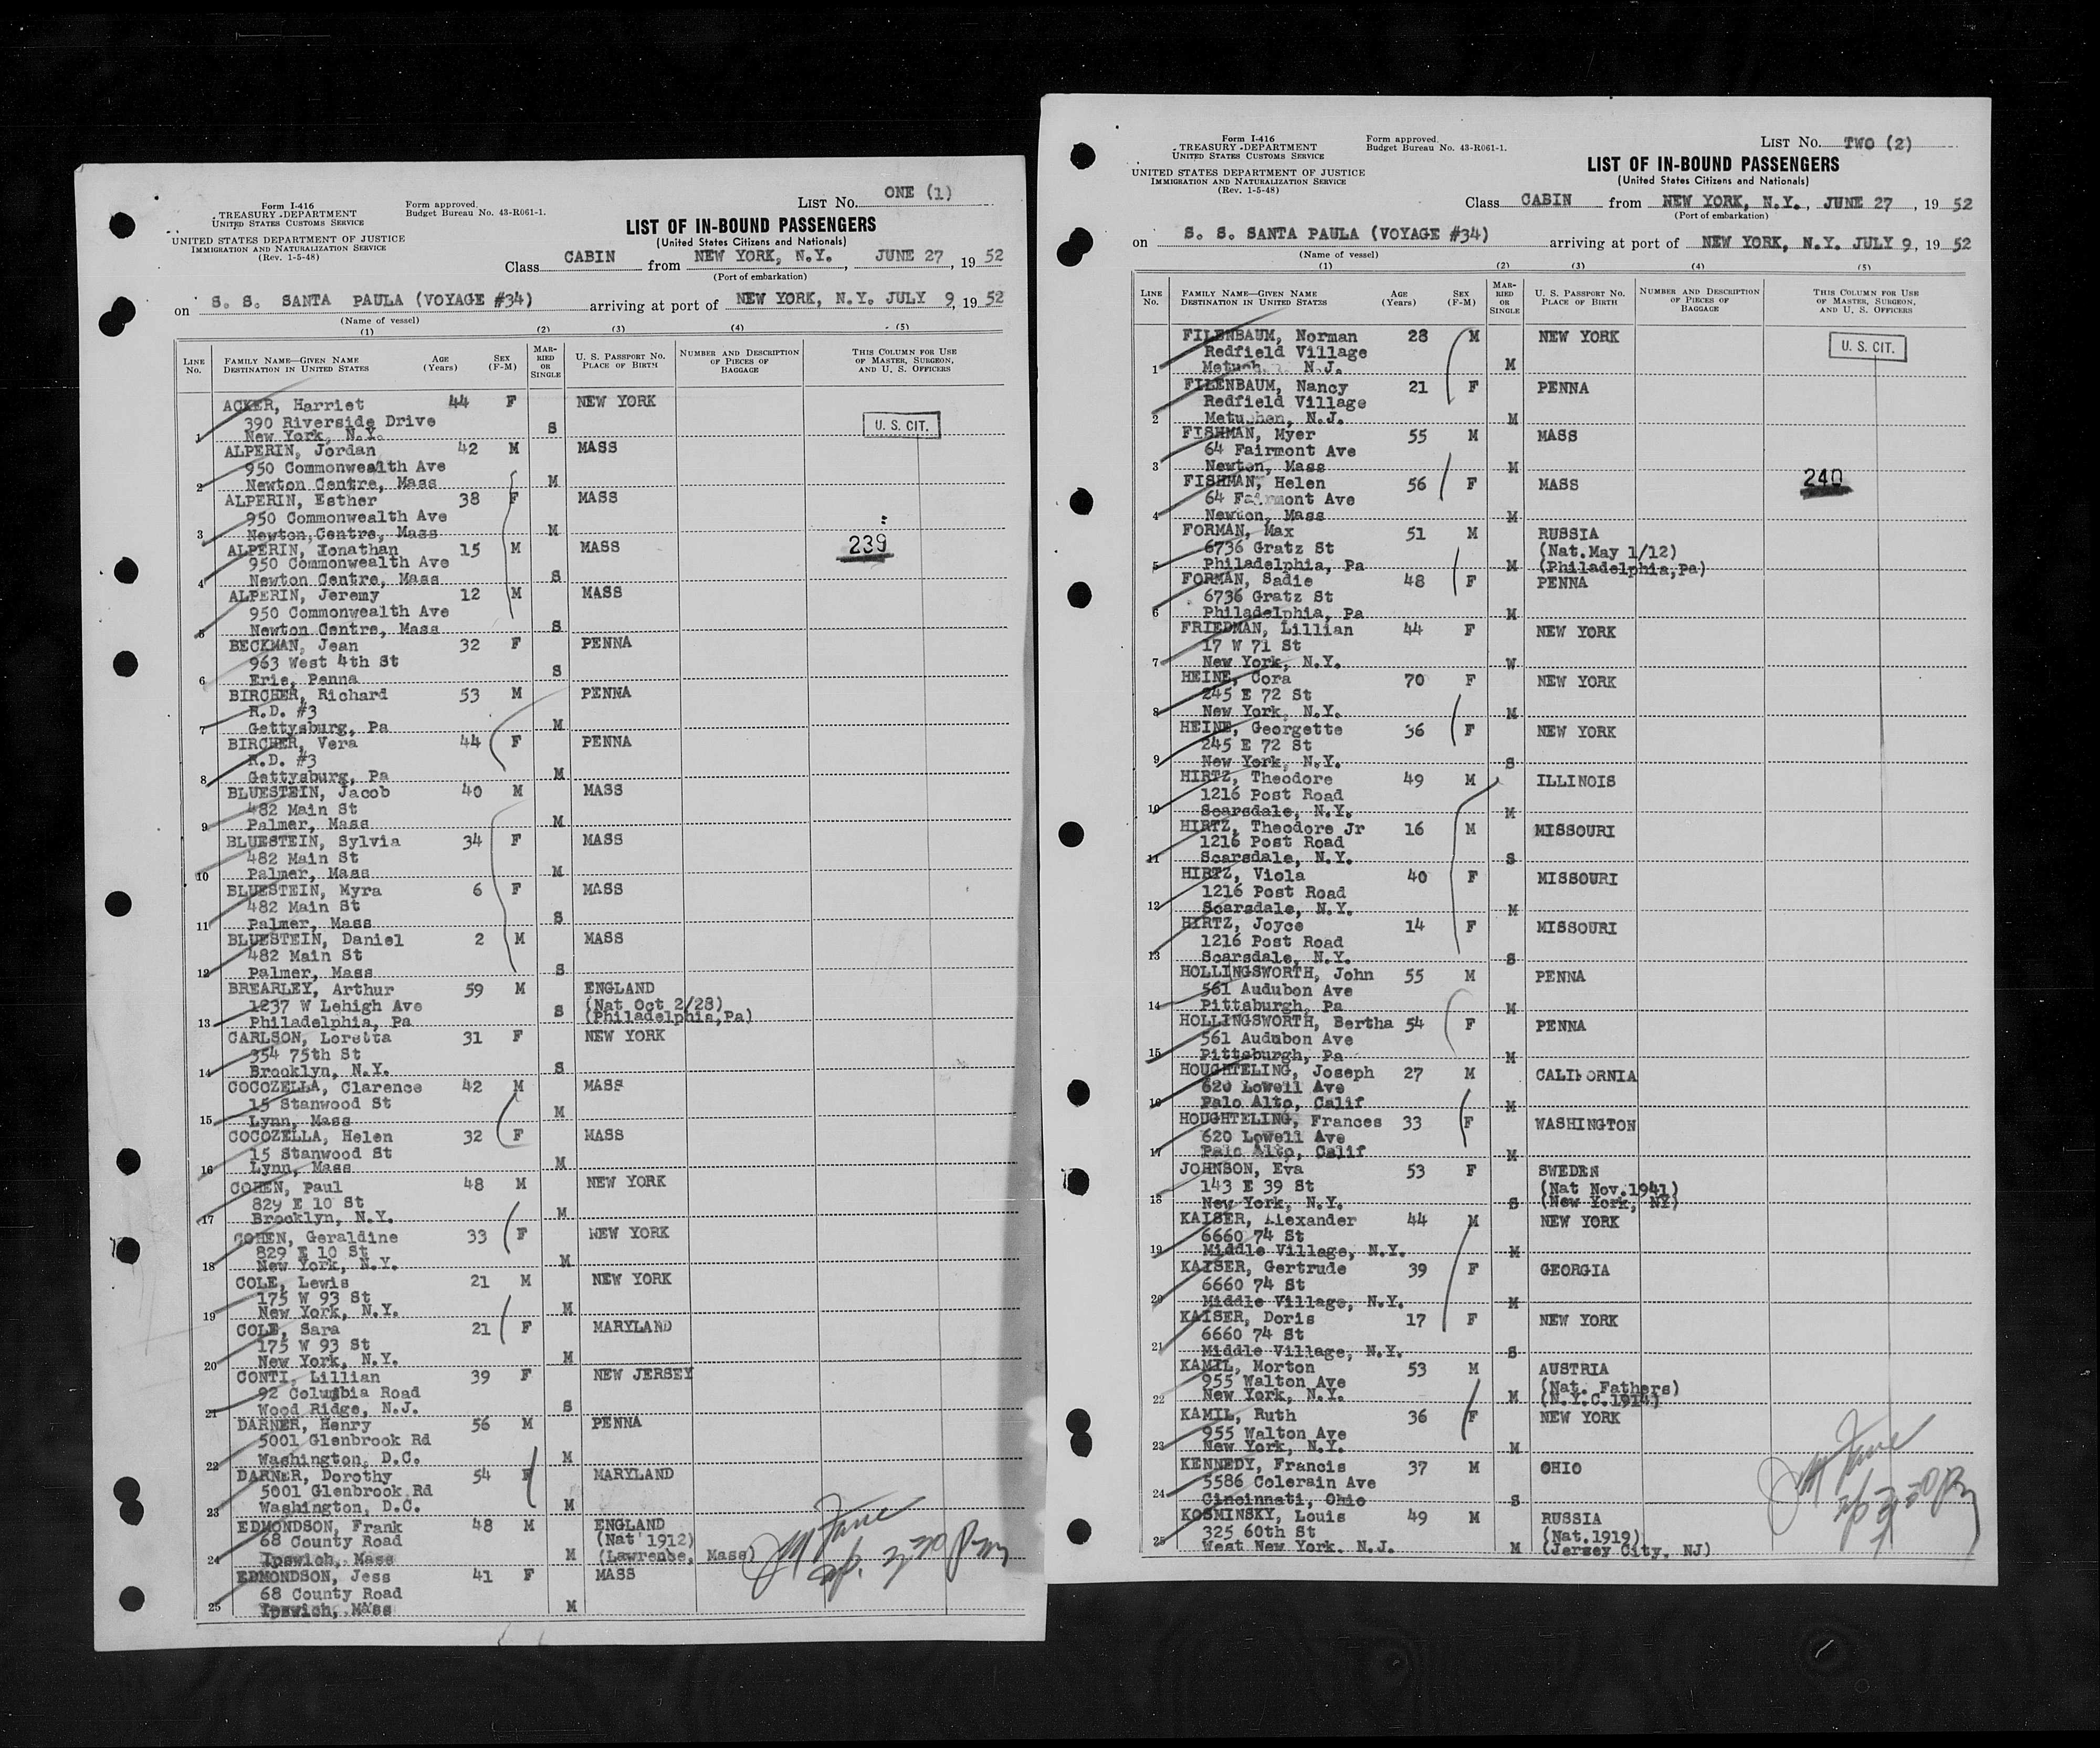 Form I-416
TREASURY DEPARTMENT
UNITED STATES CUSTOMS SERVICE
UNITED STATES DEPARTMENT OF JUSTICE
IMMIGRATION AND NATURALIZATION SERVICE
(Rev. 1-5-48)
Form approved.
Budget Bureau No. 43-R061-1.
LIST No. ONE (1)
LIST OF IN-BOUND PASSENGERS
(United States Citizens and Nationals)
Class CABIN from NEW YORK, N.Y., JUNE 27, 19 52
(Port of embarkation)
on S. S. SANTA PAULA (VOYAGE #34) arriving at port of NEW YORK, N.Y. JULY 9, 19 52
(Name of vessel)
(1) (2) (3) (4) (5)
LINE No. FAMILY NAME—GIVEN NAME DESTINATION IN UNITED STATES AGE (Years) SEX (F-M) MARRIED OR SINGLE U. S. PASSPORT No. PLACE OF BIRTH NUMBER AND DESCRIPTION OF PIECES OF BAGGAGE THIS COLUMN FOR USE OF MASTER, SURGEON, AND U. S. OFFICERS
ACKER, Harriet 44 F NEW YORK
390 Riverside Drive U. S. CIT.
1 New York, N.Y. S
ALPERIN, Jordan 42 M MASS
950 Commonwealth Ave
2 Newton Centre, Mass M
ALPERIN, Esther 38 F MASS
950 Commonwealth Ave
3 Newton Centre, Mass M
ALPERIN, Jonathan 15 M MASS 239
950 Commonwealth Ave
4 Newton Centre, Mass S
ALPERIN, Jeremy 12 M MASS
950 Commonwealth Ave
5 Newton Centre, Mass S
BECKMAN, Jean 32 F PENNA
963 West 4th St
6 Erie, Penna S
BIRCHER, Richard 53 M PENNA
R.D. #3
7 Gettysburg, Pa M
BIRCHER, Vera 44 F PENNA
R.D. #3
8 Gettysburg, Pa M
BLUESTEIN, Jacob 40 M MASS
482 Main St
9 Palmer, Mass M
BLUESTEIN, Sylvia 34 F MASS
482 Main St
10 Palmer, Mass M
BLUESTEIN, Myra 6 F MASS
482 Main St
11 Palmer, Mass S
BLUESTEIN, Daniel 2 M MASS
482 Main St
12 Palmer, Mass S
BREARLEY, Arthur 59 M ENGLAND
1237 W Lehigh Ave (Nat Oct 2/28)
13 Philadelphia, Pa S (Philadelphia,Pa)
CARLSON, Loretta 31 F NEW YORK
354 75th St
14 Brooklyn, N.Y. S
COCOZELLA, Clarence 42 M MASS
15 Stanwood St
15 Lynn, Mass M
COCOZELLA, Helen 32 F MASS
15 Stanwood St
16 Lynn, Mass M
COHEN, Paul 48 M NEW YORK
829 E 10 St
17 Brooklyn, N.Y. M
COHEN, Geraldine 33 F NEW YORK
829 E 10 St
18 New York, N.Y. M
COLE, Lewis 21 M NEW YORK
175 W 93 St
19 New York, N.Y. M
COLE, Sara 21 F MARYLAND
175 W 93 St
20 New York, N.Y. M
CONTI, Lillian 39 F NEW JERSEY
92 Columbia Road
21 Wood Ridge, N.J. S
DARNER, Henry 56 M PENNA
5001 Glenbrook Rd
22 Washington, D.C. M
DARNER, Dorothy 54 F MARYLAND
5001 Glenbrook Rd
23 Washington, D.C. M
EDMONDSON, Frank 48 M ENGLAND
68 County Road (Nat 1912)
24 Ipswich, Mass M (Lawrence, Mass)
EDMONDSON, Jess 41 F MASS
68 County Road
25 Ipswich, Mass M
Form I-416
TREASURY DEPARTMENT
UNITED STATES CUSTOMS SERVICE
UNITED STATES DEPARTMENT OF JUSTICE
IMMIGRATION AND NATURALIZATION SERVICE
(Rev. 1-5-48)
Form approved.
Budget Bureau No. 43-R061-1.
LIST No. TWO (2)
LIST OF IN-BOUND PASSENGERS
(United States Citizens and Nationals)
Class CABIN from NEW YORK, N.Y., JUNE 27, 19 52
(Port of embarkation)
on S. S. SANTA PAULA (VOYAGE #34) arriving at port of NEW YORK, N.Y. JULY 9, 19 52
(Name of vessel)
(1) (2) (3) (4) (5)
LINE No. FAMILY NAME—GIVEN NAME DESTINATION IN UNITED STATES AGE (Years) SEX (F-M) MARRIED OR SINGLE U. S. PASSPORT No. PLACE OF BIRTH NUMBER AND DESCRIPTION OF PIECES OF BAGGAGE THIS COLUMN FOR USE OF MASTER, SURGEON, AND U. S. OFFICERS
FILENBAUM, Norman 28 M NEW YORK
Redfield Village U. S. CIT.
1 N.J. M
FILENBAUM, Nancy 21 F PENNA
Redfield Village
2 Metuchen, N.J. M
FISHMAN, Myer 55 M MASS
64 Fairmont Ave
3 Newton, Mass M
FISHMAN, Helen 56 F MASS 240
64 Fairmont Ave
4 Newton, Mass M
FORMAN, Max 51 M RUSSIA
6736 Gratz St (Nat.May 1/12)
5 Philadelphia, Pa M (Philadelphia,Pa)
FORMAN, Sadie 48 F PENNA
6736 Gratz St
6 Philadelphia, Pa M
FRIEDMAN, Lillian 44 F NEW YORK
17 W 71 St
7 New York, N.Y. W
HEINE, Cora 70 F NEW YORK
245 E 72 St
8 New York, N.Y. M
HEINE, Georgette 36 F NEW YORK
245 E 72 St
9 New York, N.Y. S
HIRTZ, Theodore 49 M ILLINOIS
1216 Post Road
10 Scarsdale, N.Y. M
HIRTZ, Theodore Jr 16 M MISSOURI
1216 Post Road
11 Scarsdale, N.Y. S
HIRTZ, Viola 40 F MISSOURI
1216 Post Road
12 Scarsdale, N.Y. M
HIRTZ, Joyce 14 F MISSOURI
1216 Post Road
13 Scarsdale, N.Y. S
HOLLINGSWORTH, John 55 M PENNA
561 Audubon Ave
14 Pittsburgh, Pa M
HOLLINGSWORTH, Bertha 54 F PENNA
561 Audubon Ave
15 Pittsburgh, Pa M
HOUGHTELING, Joseph 27 M CALIFORNIA
620 Lowell Ave
16 Palo Alto, Calif M
HOUGHTELING, Frances 33 F WASHINGTON
620 Lowell Ave
17 Palo Alto, Calif M
JOHNSON, Eva 53 F SWEDEN
143 E 39 St (Nat Nov.1941)
18 New York, N.Y. S (New York, NY)
KAISER, Alexander 44 M NEW YORK
6660 74 St
19 Middle Village, N.Y. M
KAISER, Gertrude 39 F GEORGIA
6660 74 St
20 Middle Village, N.Y. M
KAISER, Doris 17 F NEW YORK
6660 74 St
21 Middle Village, N.Y. S
KAMIL, Morton 53 M AUSTRIA
955 Walton Ave (Nat. Fathers)
22 New York, N.Y. M (N.Y.C.1914)
KAMIL, Ruth 36 F NEW YORK
955 Walton Ave
23 New York, N.Y. M
KENNEDY, Francis 37 M OHIO
5586 Colerain Ave
24 Cincinnati, Ohio S
KOSMINSKY, Louis 49 M RUSSIA
325 60th St (Nat.1919)
25 West New York, N.J. M (Jersey City, NJ)